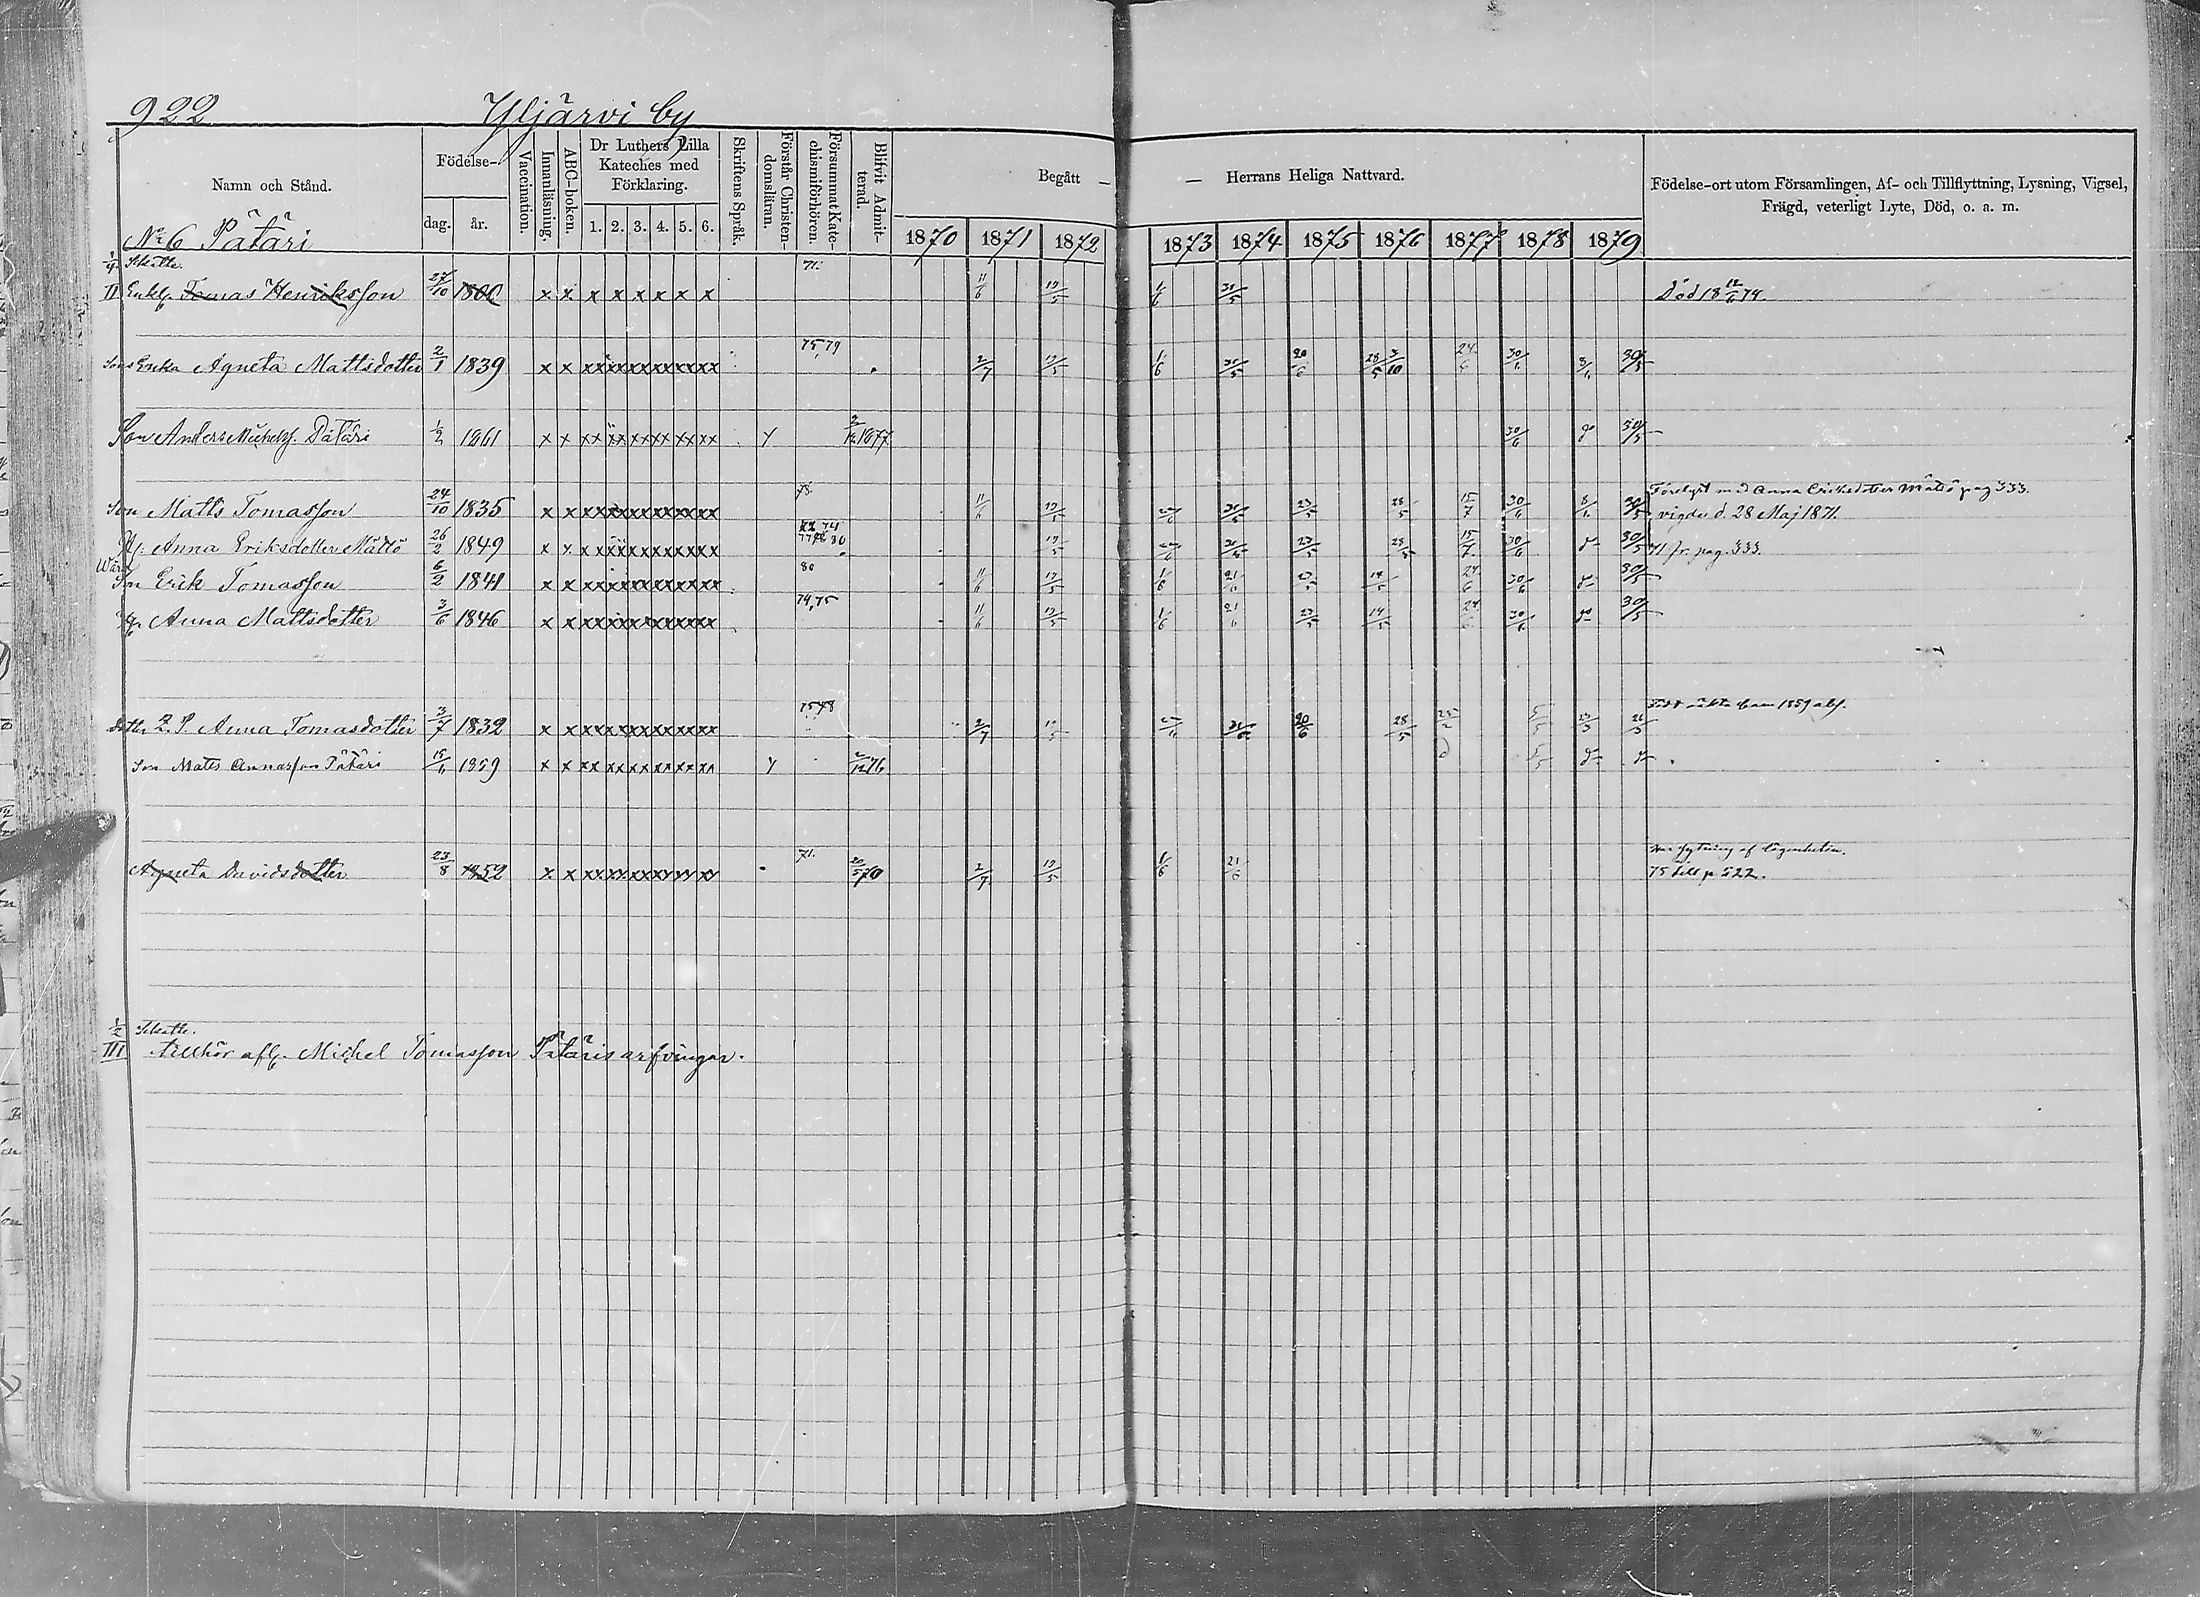 922 Yljärvi by
Namn och Stånd.
Födelse-
dag. år.
Vaccination.
Innanläsning.
ABC-boken.
Dr Luthers Lilla Kateches med Förklaring.
1. 2. 3. 4. 5. 6.
Skriftens Språk.
Förstår Christendomsläran.
Försummat Katechismiförhören.
Blifvit Admitterad.
Begått — — Herrans Heliga Nattvard.
1870 1871 1872 1873 1874 1875 1876 1877 1878 1879
Födelse-ort utom Församlingen, Af- och Tillflyttning, Lysning, Vigsel,
Frägd, veterligt Lyte, Död, o. a. m.
No 6 Pätäri
1/4 Skatte. 71.
II Enkl. Tomas Henriksson 27/10 1800 x x x x x x x x 11/6 19/5 1/6 31/5 Död 18 12/6 74.
75, 79
Sons Enka Agneta Mattsdotter 2/1 1839 x x xx xx xx xx xx xx 2/7 19/5 1/6 31/5 20/6 28/5 3/10 24/6 30/6 8/6 30/5
Son Anders Michelss. Pätäri 1/2 1861 x x xx xx xx xx xx xx y 1877 30/6 do 30/5
78. Förelyst med Anna Eriksdotter Mättö pag 333.
Son Matts Tomasson 24/10 1835 x x xx xx xx xx xx xx 11/6 19/5 31/5 23/5 28/5 15/7 30/6 8/6 30/5 vigde d. 28 Maj 1871.
Hu. Anna Eriksdotter Mättö 26/2 1849 x x xx xx xx xx xx xx 19/5 31/5 23/5 28/5 15/7 30/6 do 30/5 71 fr. pag. 333.
80
Son Erik Tomasson 6/2 1841 x x xx xx xx xx xx xx 11/6 19/5 1/6 21/6 23/5 14/5 24/6 30/6 do 30/5
74, 75
Hu Anna Mattsdotter 3/6 1846 x x xx xx xx xx xx xx 11/6 19/5 1/6 21/6 23/5 14/5 24/6 30/6 do 30/5
75 78
dotter Anna Tomasdotter 3/7 1832 x x xx xx xx xx xx xx 2/7 19/5 20/6 28/5 25/2 5/5
Son Matts Annasson Pätäri 15/6 1859 x x xx xx xx xx xx xx y 76 5/5 do do
71.
Agneta Davidsdotter 23/8 1852 x x xx xx xx xx xx xx 20/5 70 2/7 19/5 1/6 21/6 75 till p 522.
1/2 Skatte.
III tillhör afl. Michel Tomasson Pätäris arfvingar.